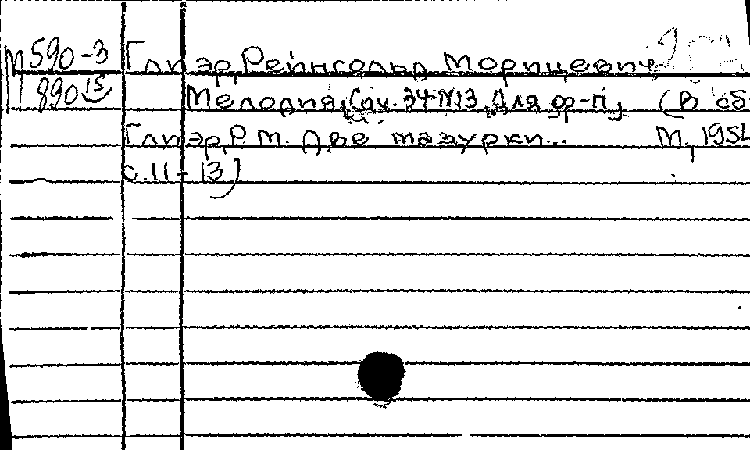 М 590-3 Глиэр, Рейнгольд Морицевич
М 890 15 Мелодия, Соч. 34 N13, Для ф-п, (В сб
Глиэр, Р. М. Две мазурки... М, 1954
с. 11-13)